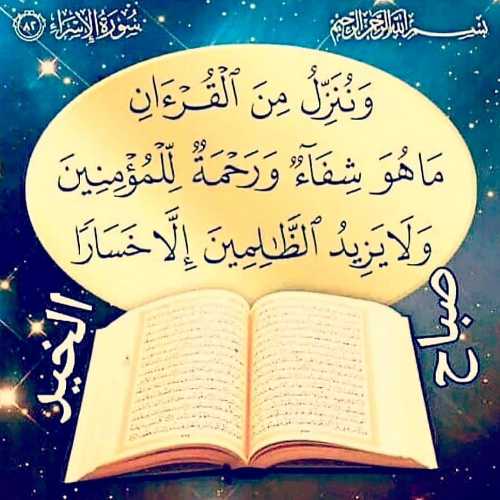 بسم الله الرحمن الرحيم
سورة الإسراء ٨٢
وَنُنَزِّلُ مِنَ ٱلْقُرْءَانِ
مَاهُوَ شِفَآءٌ وَرَحْمَةٌ لِّلْمُؤْمِنِينَ
وَلَا يَزِيدُ ٱلظَّٰلِمِينَ إِلَّا خَسَارًا
صباح
الخير